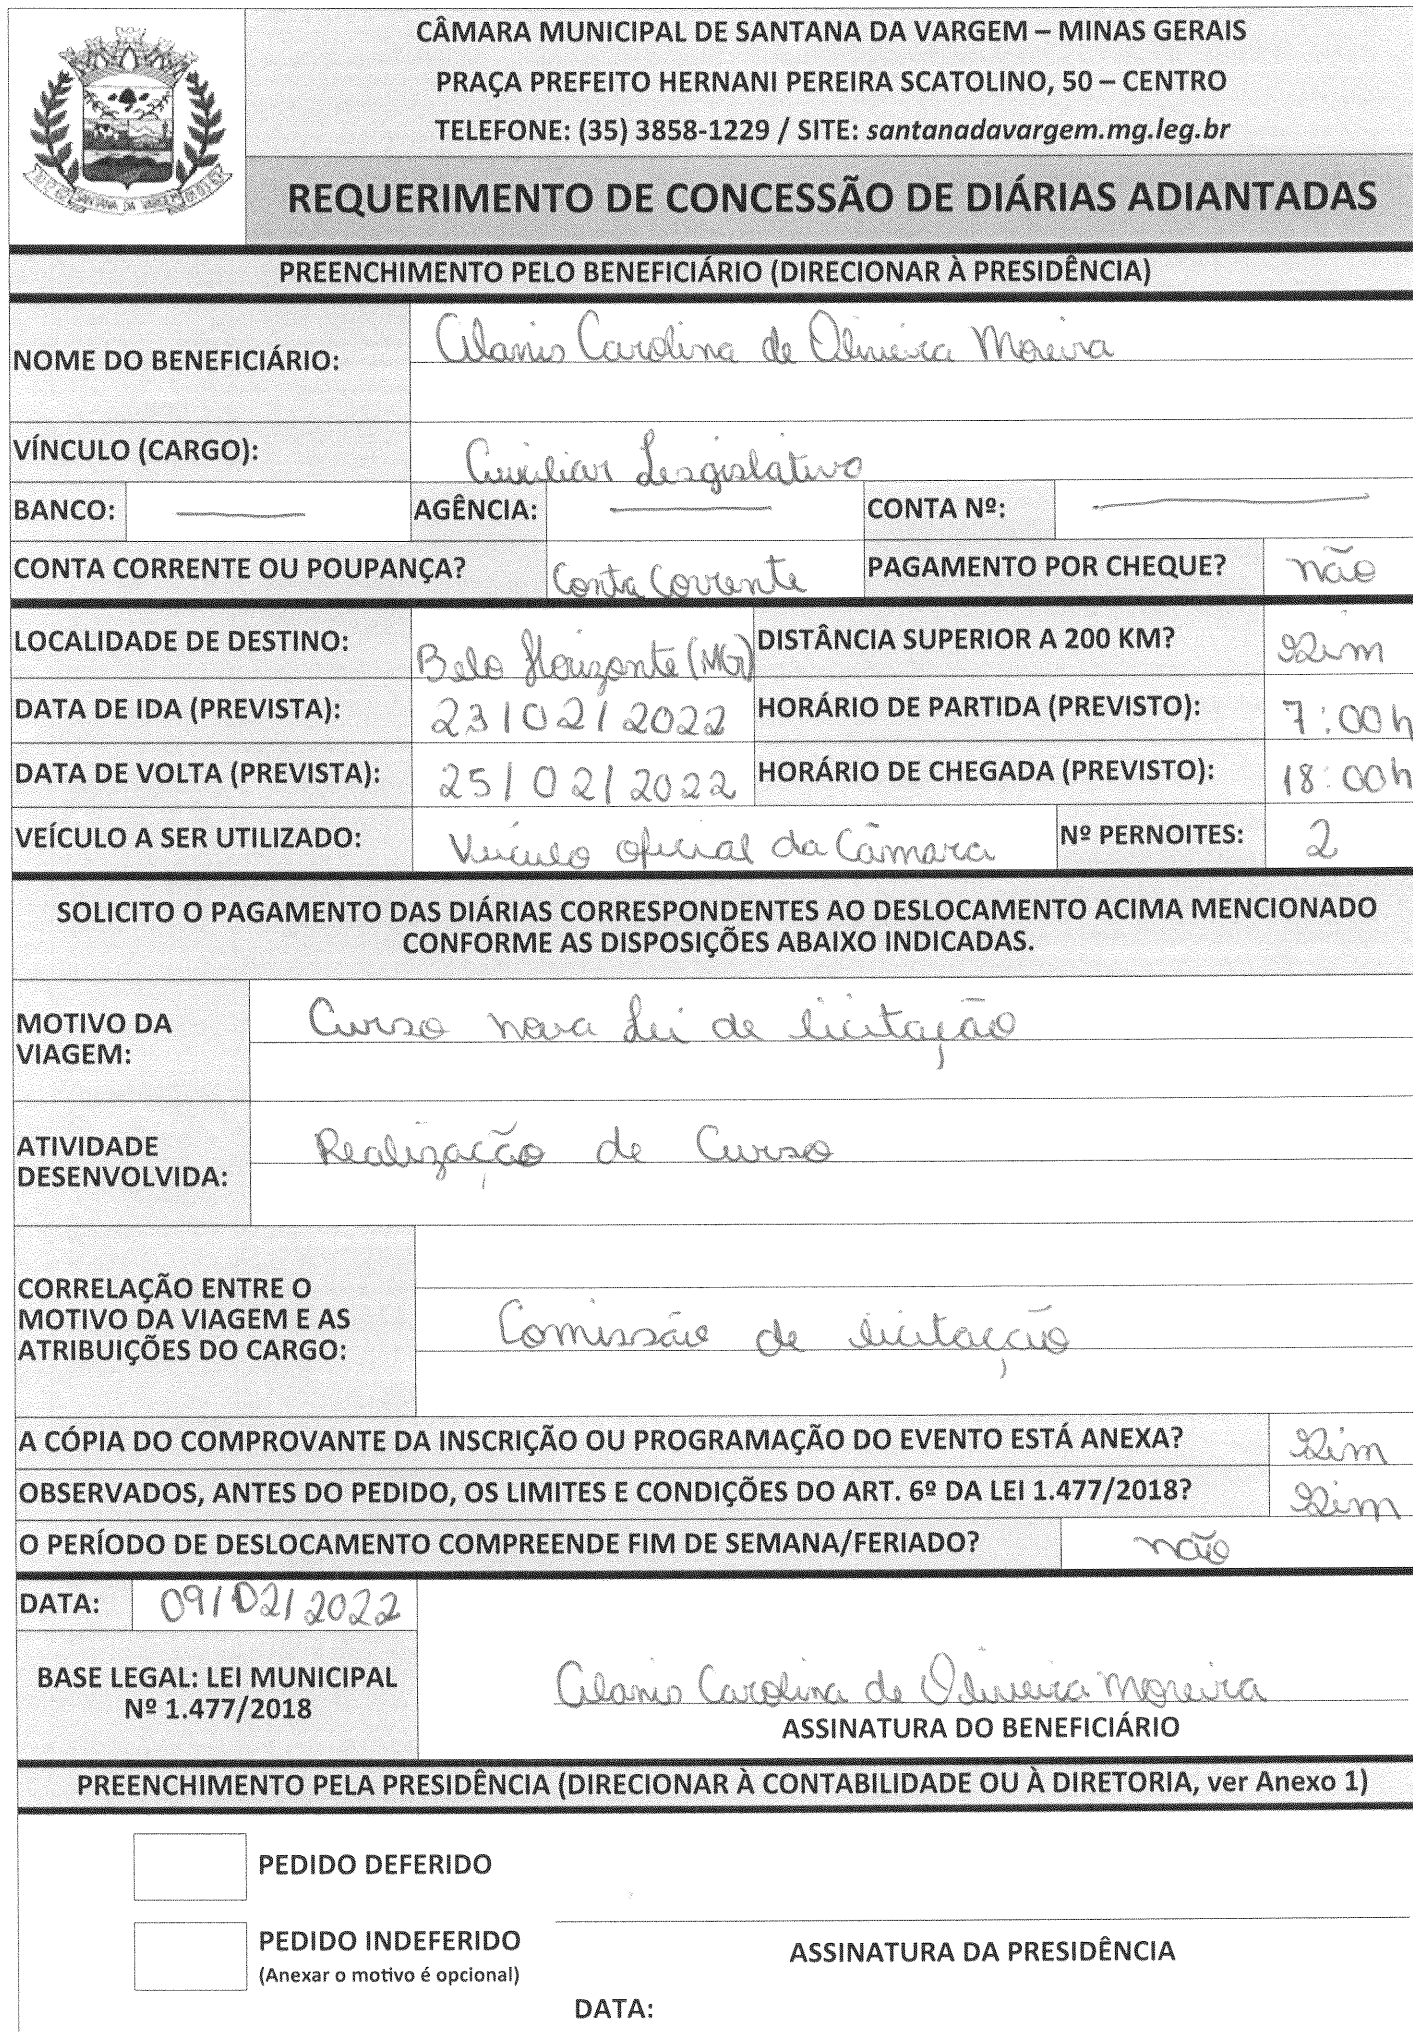 CÂMARA MUNICIPAL DE SANTANA DA VARGEM – MINAS GERAIS
PRAÇA PREFEITO HERNANI PEREIRA SCATOLINO, 50 – CENTRO
TELEFONE: (35) 3858-1229 / SITE: santanadavargem.mg.leg.br
SANTANA DA VARGEM
REQUERIMENTO DE CONCESSÃO DE DIÁRIAS ADIANTADAS
PREENCHIMENTO PELO BENEFICIÁRIO (DIRECIONAR À PRESIDÊNCIA)
NOME DO BENEFICIÁRIO: Alanis Carolina de Oliveira Moreira
VÍNCULO (CARGO): Auxiliar Lesgislativo
BANCO: — AGÊNCIA: — CONTA Nº: —
CONTA CORRENTE OU POUPANÇA? Conta Corrente PAGAMENTO POR CHEQUE? não
LOCALIDADE DE DESTINO: Belo Horizonte (MG) DISTÂNCIA SUPERIOR A 200 KM? Sim
DATA DE IDA (PREVISTA): 23/02/2022 HORÁRIO DE PARTIDA (PREVISTO): 7:00h
DATA DE VOLTA (PREVISTA): 25/02/2022 HORÁRIO DE CHEGADA (PREVISTO): 18:00h
VEÍCULO A SER UTILIZADO: Veículo oficial da Câmara Nº PERNOITES: 2
SOLICITO O PAGAMENTO DAS DIÁRIAS CORRESPONDENTES AO DESLOCAMENTO ACIMA MENCIONADO
CONFORME AS DISPOSIÇÕES ABAIXO INDICADAS.
MOTIVO DA
VIAGEM:
Curso nova Lei de licitação
ATIVIDADE
DESENVOLVIDA:
Realização de Curso
CORRELAÇÃO ENTRE O
MOTIVO DA VIAGEM E AS
ATRIBUIÇÕES DO CARGO:
Comissão de licitação
A CÓPIA DO COMPROVANTE DA INSCRIÇÃO OU PROGRAMAÇÃO DO EVENTO ESTÁ ANEXA? Sim
OBSERVADOS, ANTES DO PEDIDO, OS LIMITES E CONDIÇÕES DO ART. 6º DA LEI 1.477/2018? Sim
O PERÍODO DE DESLOCAMENTO COMPREENDE FIM DE SEMANA/FERIADO? não
DATA: 09/02/2022
BASE LEGAL: LEI MUNICIPAL
Nº 1.477/2018
Alanis Carolina de Oliveira Moreira
ASSINATURA DO BENEFICIÁRIO
PREENCHIMENTO PELA PRESIDÊNCIA (DIRECIONAR À CONTABILIDADE OU À DIRETORIA, ver Anexo 1)
PEDIDO DEFERIDO
PEDIDO INDEFERIDO
(Anexar o motivo é opcional)
ASSINATURA DA PRESIDÊNCIA
DATA: